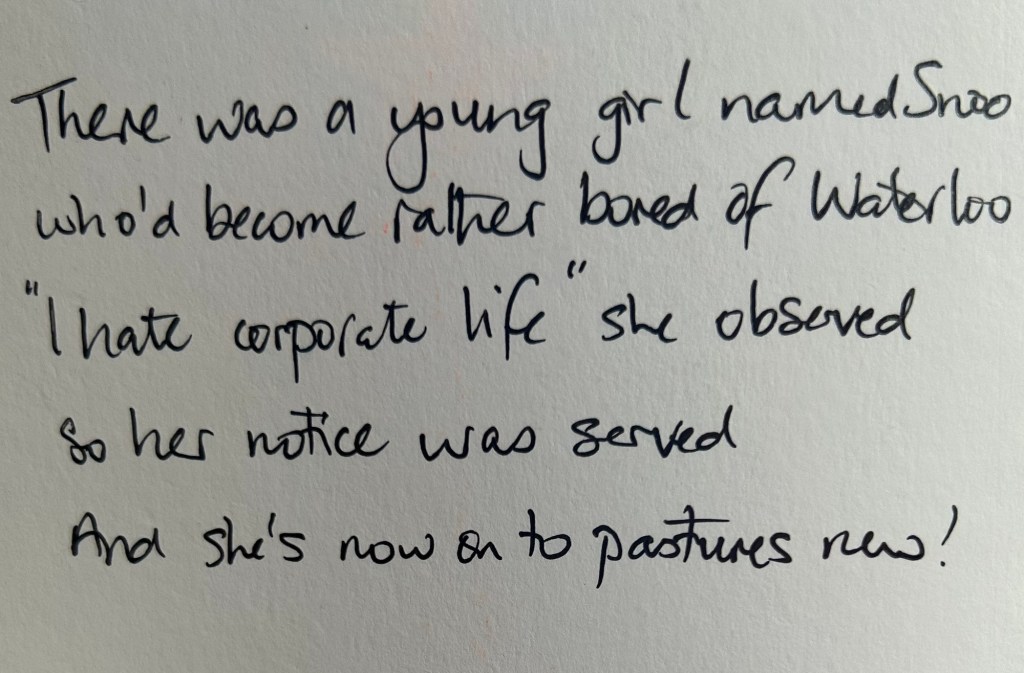 There was a young girl named Snoo
who'd become rather bored of Waterloo
"I hate corporate life" she observed
So her notice was served
And she's now on to pastures new!